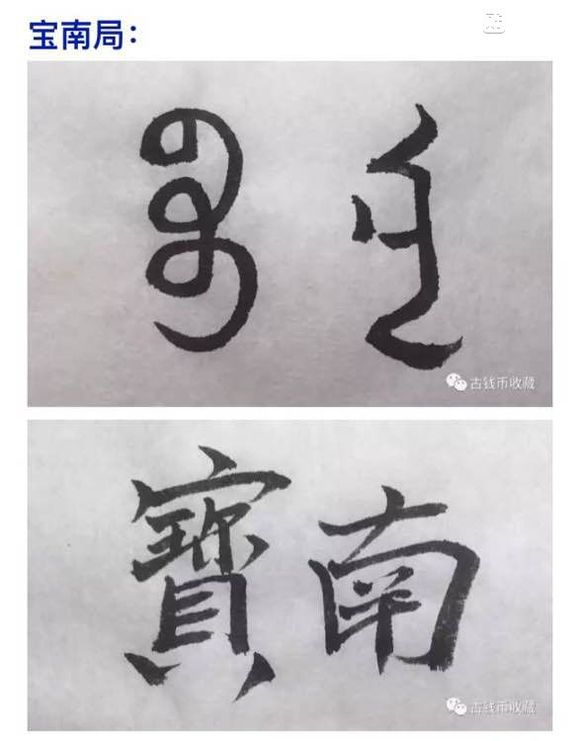 宝南局：
ᠪᠣᠣ ᠨᠠᠨ
古钱币收藏
寶南
古钱币收藏